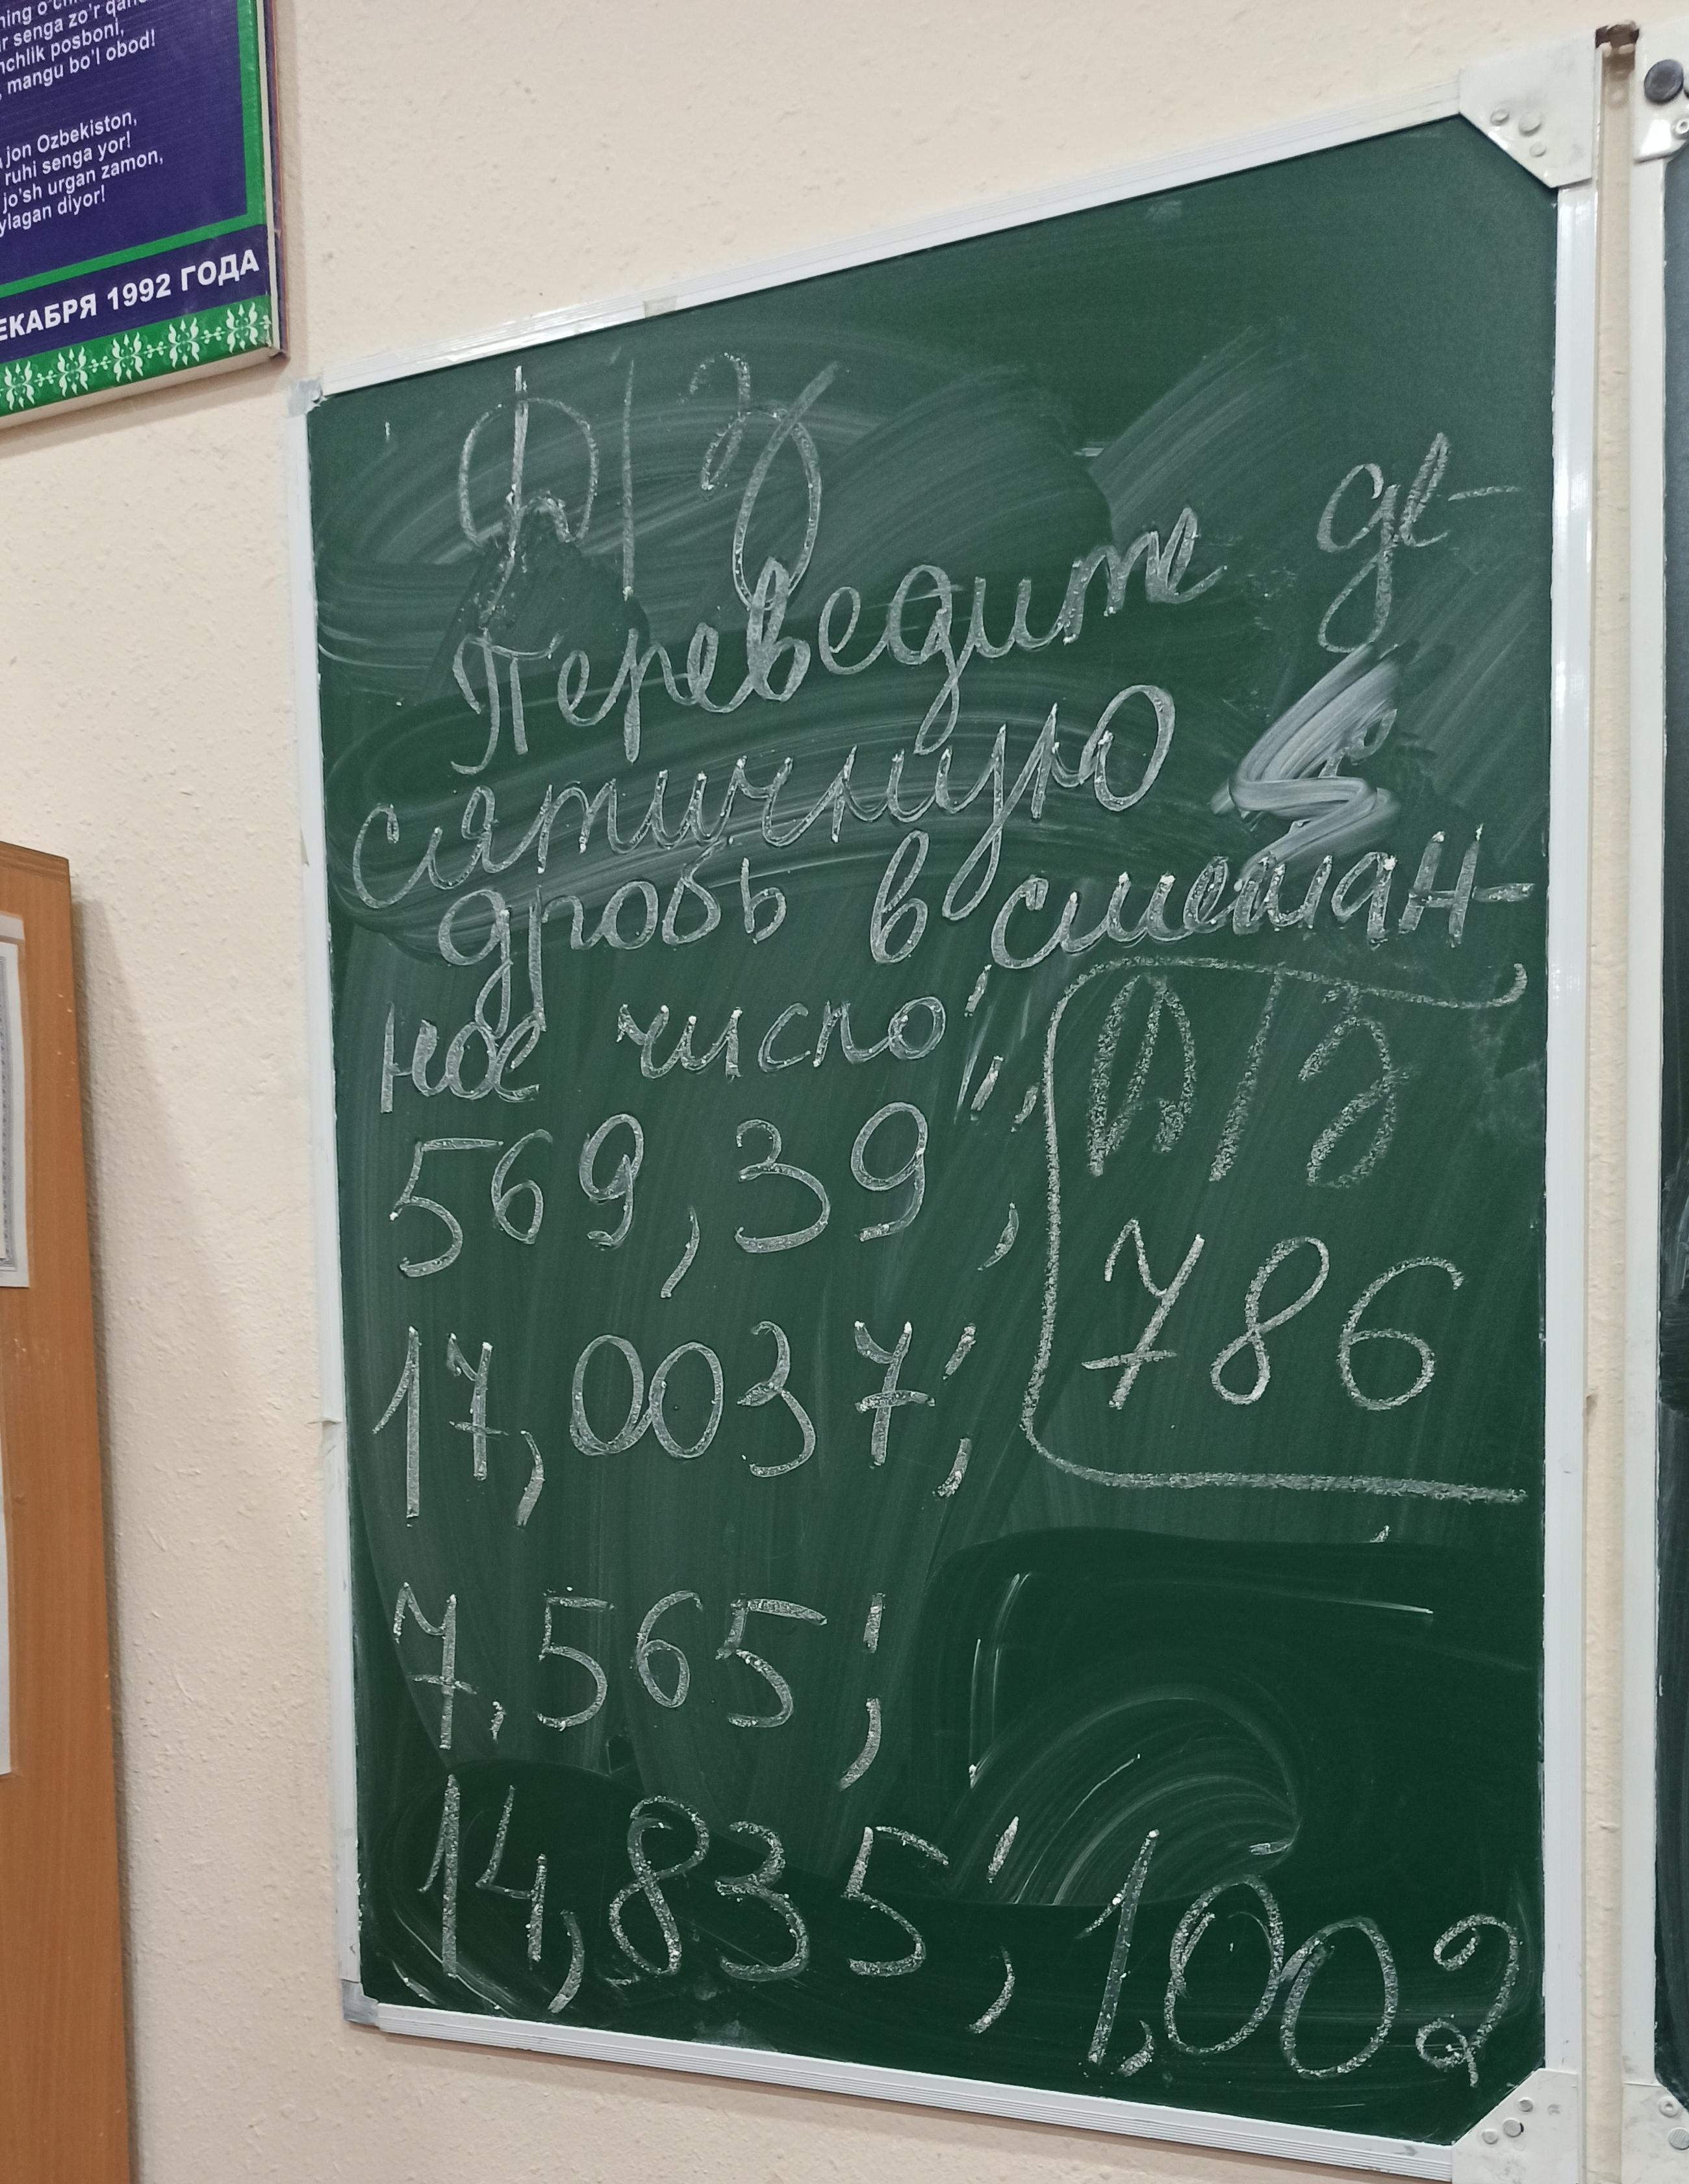 senga zo'r
nchlik posboni,
mangu bo'l obod!
jon Ozbekiston,
ruhi senga yor!
jo'sh urgan zamon,
ylagan diyor!
ЕКАБРЯ 1992 ГОДА
Д/З
Переведите де-
сятичную
дробь в смешан-
ное число:
569,39;
17,0037;
7,565;
14,835; 1,002
Д/З
786